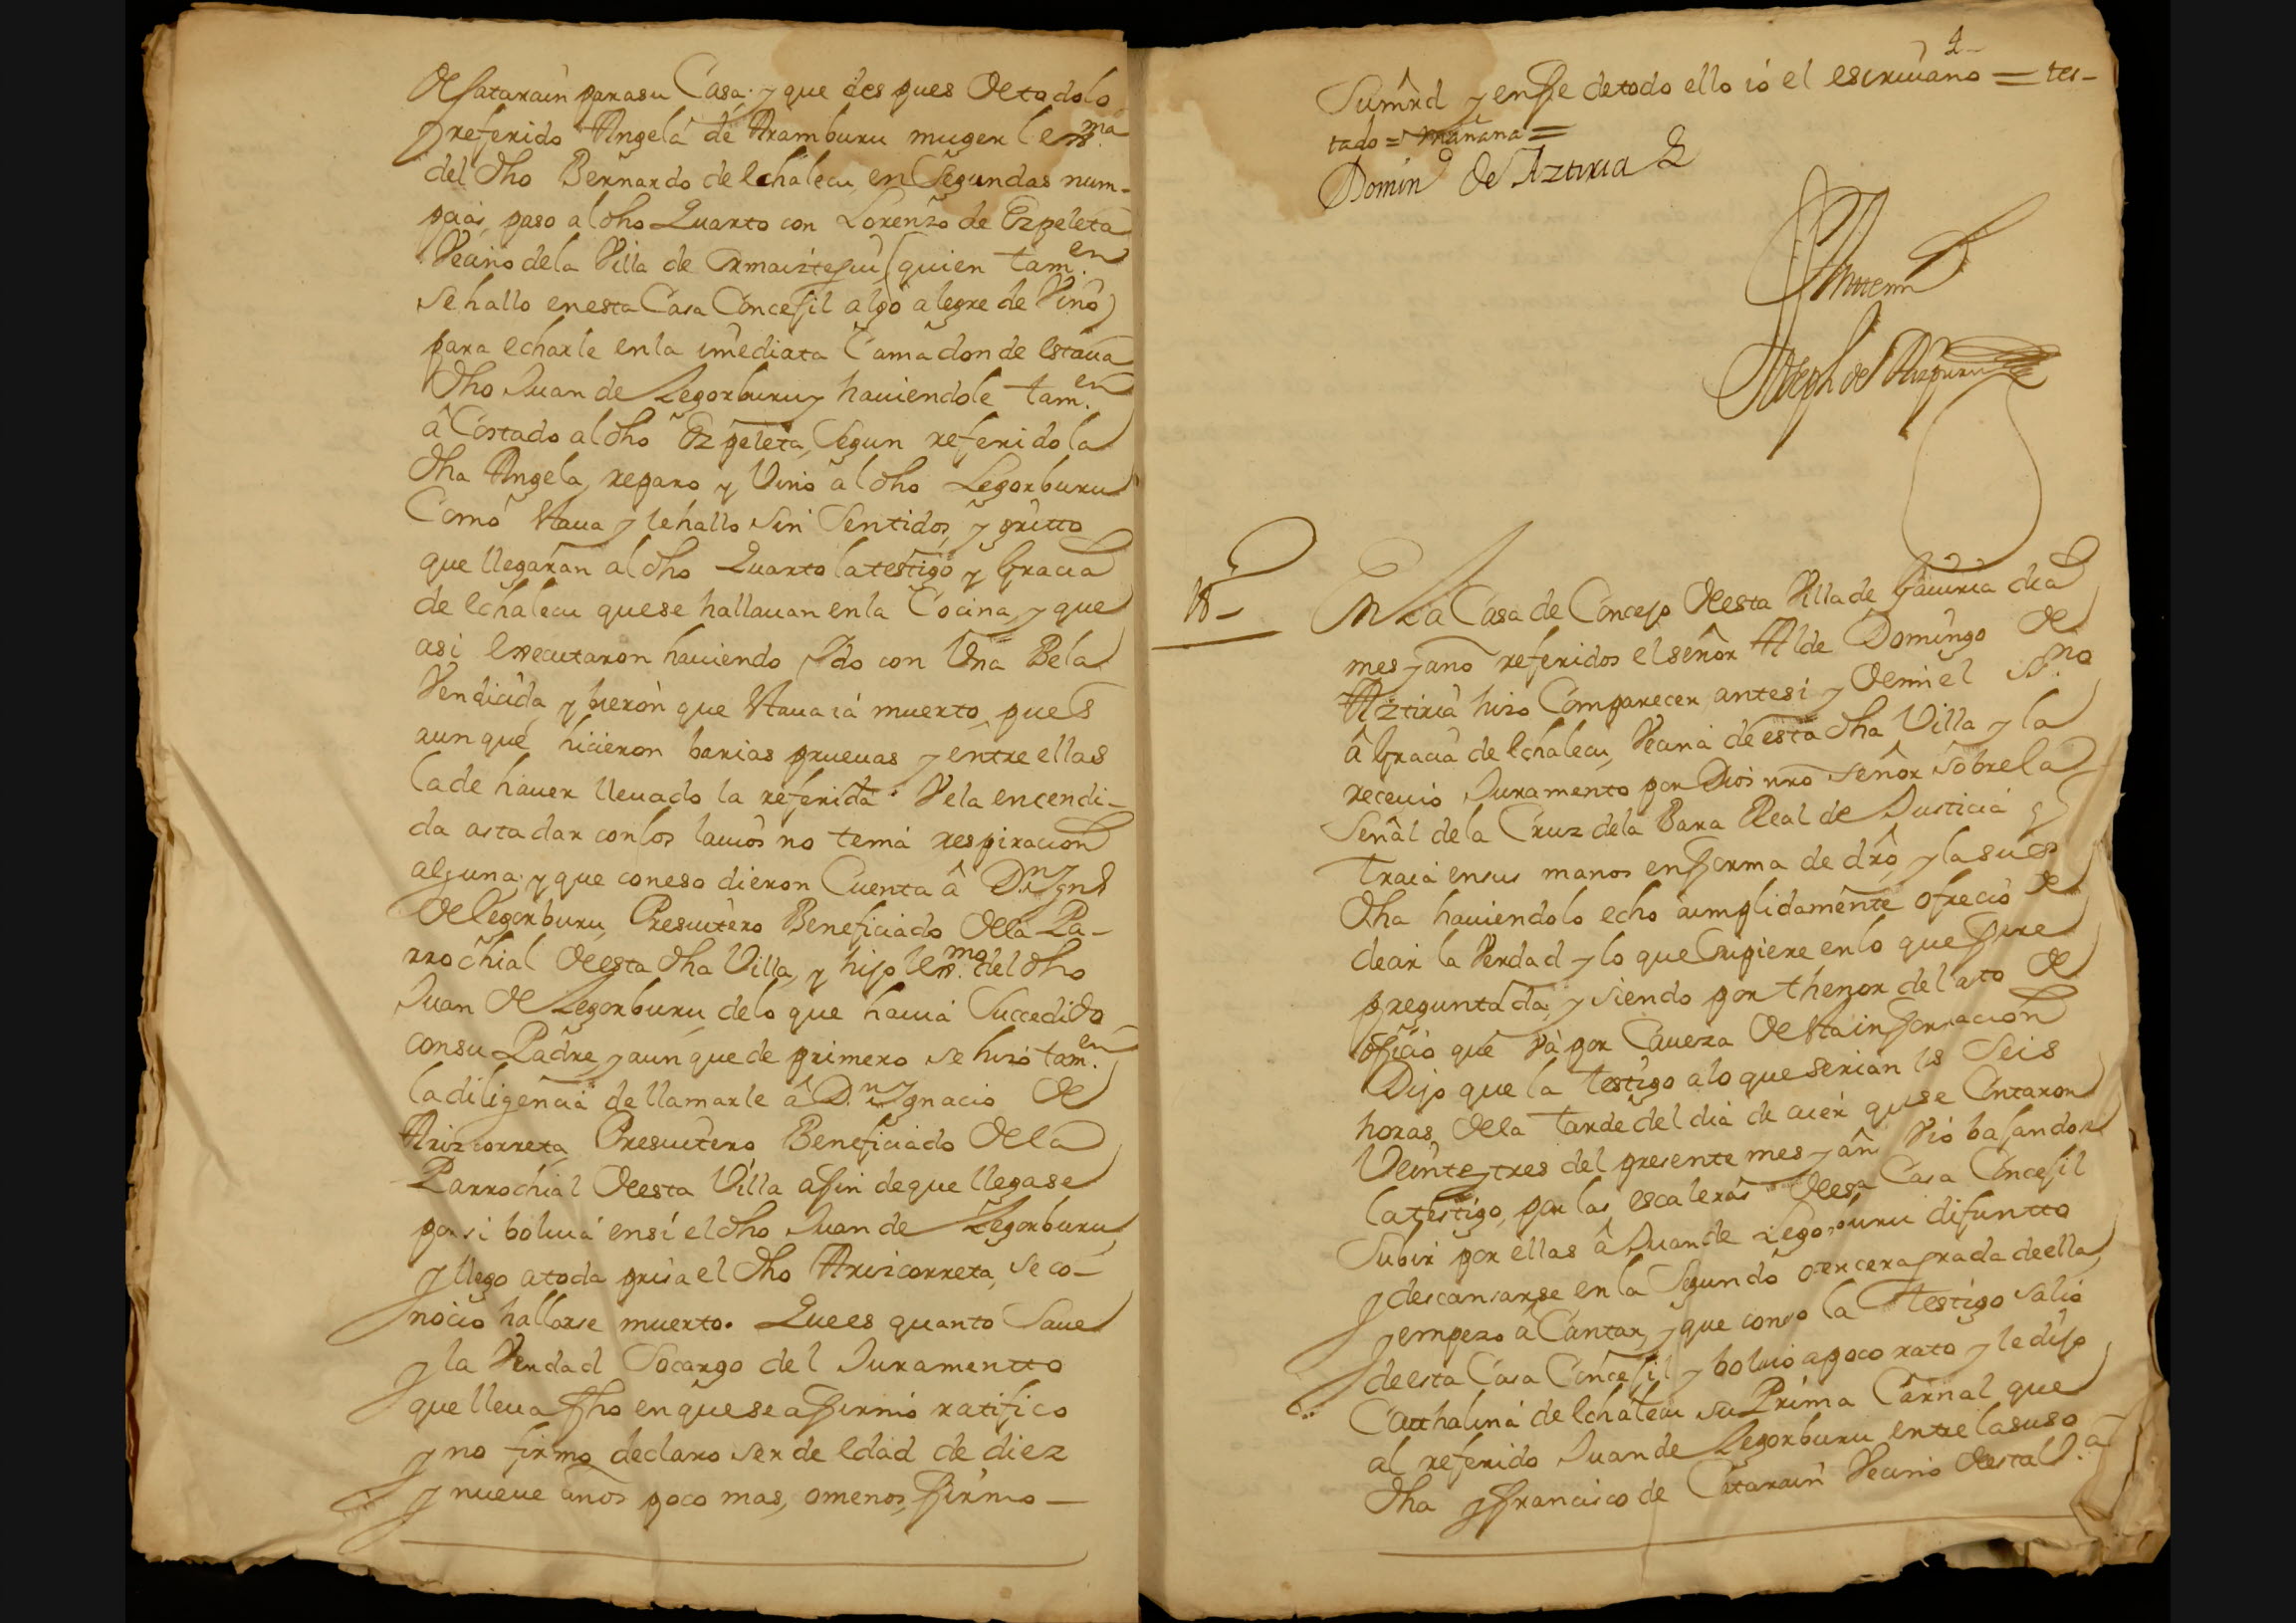 de Satarain para su Casa. y que des pues de todo lo
referido Angela de Aramburu muger lexma
del dho Bernardo de Echalecu, en Segundas num-
pcias, paso al dho Quarto con Lorenzo de Ezpeleta
Vecino de la Villa de Ormaiztegui (quien tamen
se hallo en esta Casa Concejil algo alegre de Vino)
para echarle en la imediata Cama donde estaua
dho Juan de Legorburu y hauiendole tamen
â Costado al dho Ezpeleta, Segun referido la
dha Angela, reparo y Vino al dho Legorburu
Como staua y le hallo sin Sentidos, y gritto
que llegaran al dho Quarto la testigo y Gracia
de Echalecu que se hallauan en la Cocina, y que
asi lo executaron hauiendo Ydo con Vna Bela
Vendicida, y bieron que staua iá muerto, pues
aunque hicieron barias prueuas y entre ellas
la de hauer lleuado la referida Vela encendi-
da asta dar con los lauios no tenia respiracion
alguna. y que con eso dieron Cuenta â Dn Ygno
de Legorburu, Presuitero Beneficiado de la Pa-
rrochial de esta dha Villa, y hijo lexmo del dho
Juan de Legorburu de lo que hauia Succedido
con su Padre, y aunque de primero se hizo tamen
la diligencia de llamarle â Dn Ygnacio de
Arizcorreta, Presuitero Beneficiado de la
Parrochial de esta Villa a fin de que llegase
por si boluia en sí el dho Juan de Legorburu,
y llego a toda prisa el dho Arizcorreta, se co-
nocio hallarse muerto. Que es quanto Saue
y la Verdad Socargo del Juramentto
que lleua fho en que se affirmó ratifico
y no firmo declaro ser de Edad de diez
y nueue años poco mas, o menos, firmo —
4
Sumrd y en fee de todo ello ió el escriuano = tes-
tado = mañana =
Domino de Aztiria
Antemi
Joseph de
En La Casa de Concejo de esta Villa de Gauiria dia
mes y año referidos el señor Alde Domingo de
Aztiria hizo Comparecer ante si y de mi el sno
â Gracia de Echalecu, Vecina de esta dha Villa y la
receuio Juramento por Dios nro señor sobre la
Señal de la Cruz de la Bara Real de Justicia q
traia en sus manos en forma de dro, y la suso
dha hauiendolo echo cumplidamente ofrecio de
decir la Verdad y lo que Supiere en lo que fuere
preguntada, y siendo por thenor del auto de
oficio que vá por Caueza de sta informacion
Dijo que la testigo a lo que serian ls Seis
horas, de la tarde del dia de aier que se Contaron
Veinte y tres del presente mes y añ Vió bajando
la testigo, por las escaleras de esa Casa Concejil
Subir por ellas â Juan de Legorburu difuntto
y descansarse en la Segundo o tercera grada de ella,
y empezo â Cantar, y que con eso la testigo salió
de esta Casa Concejil y boluio a poco rato y le dijo
Catthalina de Echalecu su Prima Carnal que
al referido Juan de Legorburu entre la suso
dha y Francisco de Satarain Vecino de esta Va